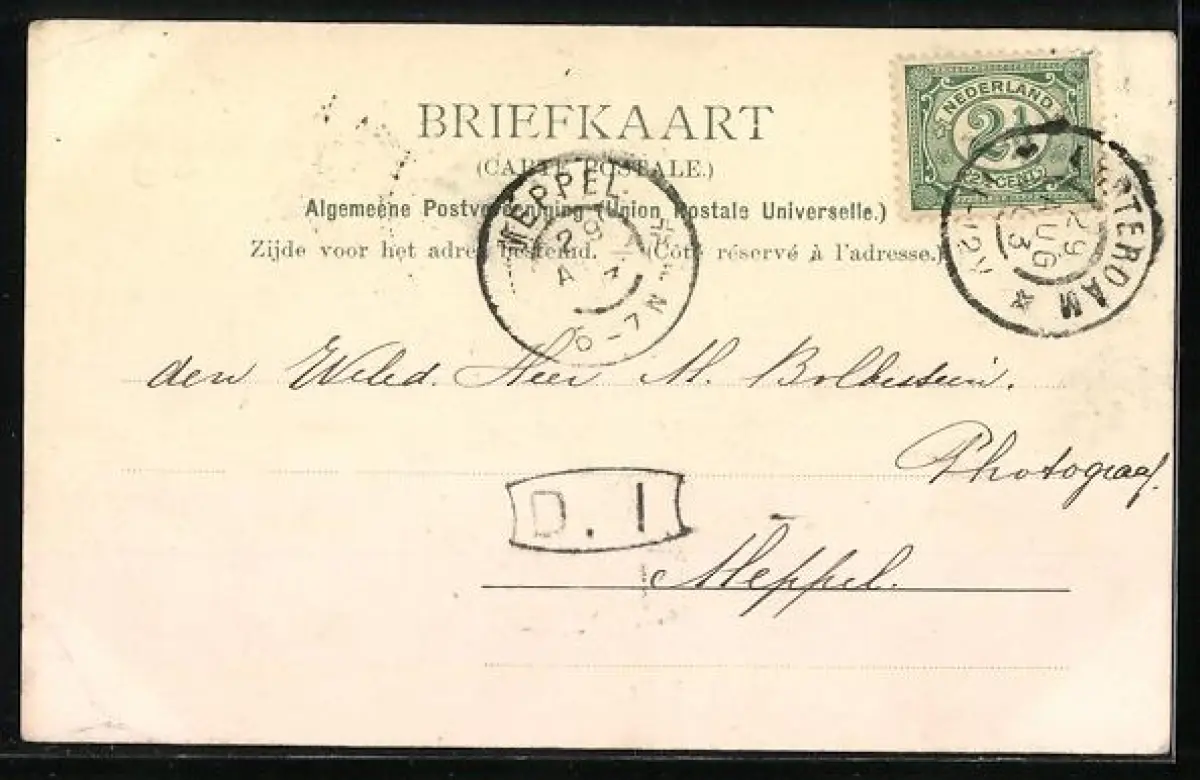 BRIEFKAART
(CARTE POSTALE.)
Algemeene Postvereeniging (Union Postale Universelle.)
Zijde voor het adres bestemd. — (Côté réservé à l'adresse.)
NEDERLAND
2½
2½ CENT
AMSTERDAM
29
AUG
3
MEPPEL
29
6-7 N
den Weled. Heer M.
Photograaf.
D. I
Meppel.